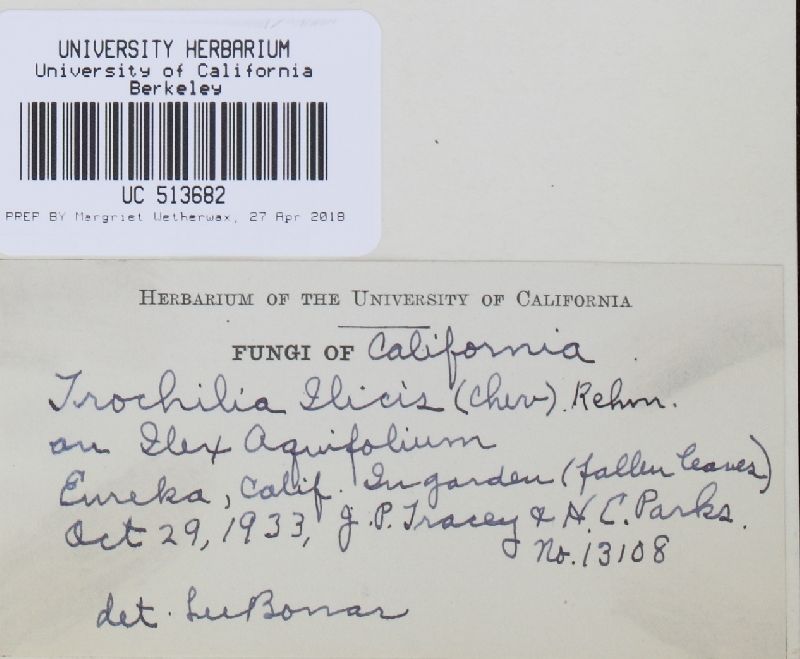 UNIVERSITY HERBARIUM
University of California
Berkeley
UC 513682
PREP BY Margriet Wetherwax, 27 Apr 2018
HERBARIUM OF THE UNIVERSITY OF CALIFORNIA
FUNGI OF California
Trochilia Ilicis (Chev). Rehm.
on Ilex Aquifolium
Eureka, Calif. In garden (fallen leaves)
Oct 29, 1933, J. P. Tracey & H. C. Parks.
No. 13108
det. Lee Bonar